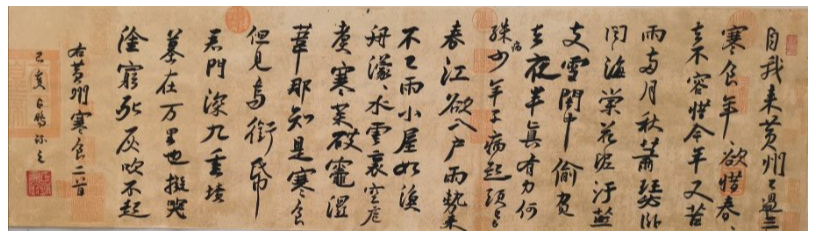 自我来黄州已過三
寒食年〻欲惜春〻
去不容惜今年又苦
雨兩月秋蕭瑟卧
闻海棠花泥汙燕
支雪闇中偷負
去夜半真有力何
殊少年子病起頭已
病
春江欲入户雨勢来
不已雨小屋如漁
舟濛〻水雲裏空庖
煮寒菜破竈濕
葦那知是寒食
但見烏銜帋
君門深九重墳
墓在万里也擬哭
塗窮死灰吹不起
右黄州寒食二首
己亥 鵬臨之